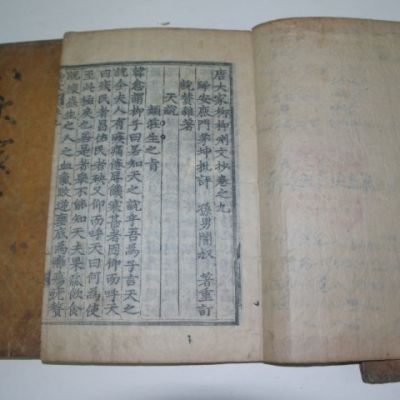 唐大家柳柳州文抄卷之九
歸安鹿門茅坤批評 孫男闇叔 著重訂
說贊雜著
天說
類莊生之旨
韓愈謂柳子曰若知天之說乎吾爲子言天之
說今夫人有疾痛倦辱饑寒甚者因仰而呼天
曰殘民者昌佑民者殃又仰而呼天曰何爲使
至此極戾也若是者舉不能知天夫果蓏飮食
旣壞蟲生之人之血氣敗逆壅底爲癰瘍疣贅